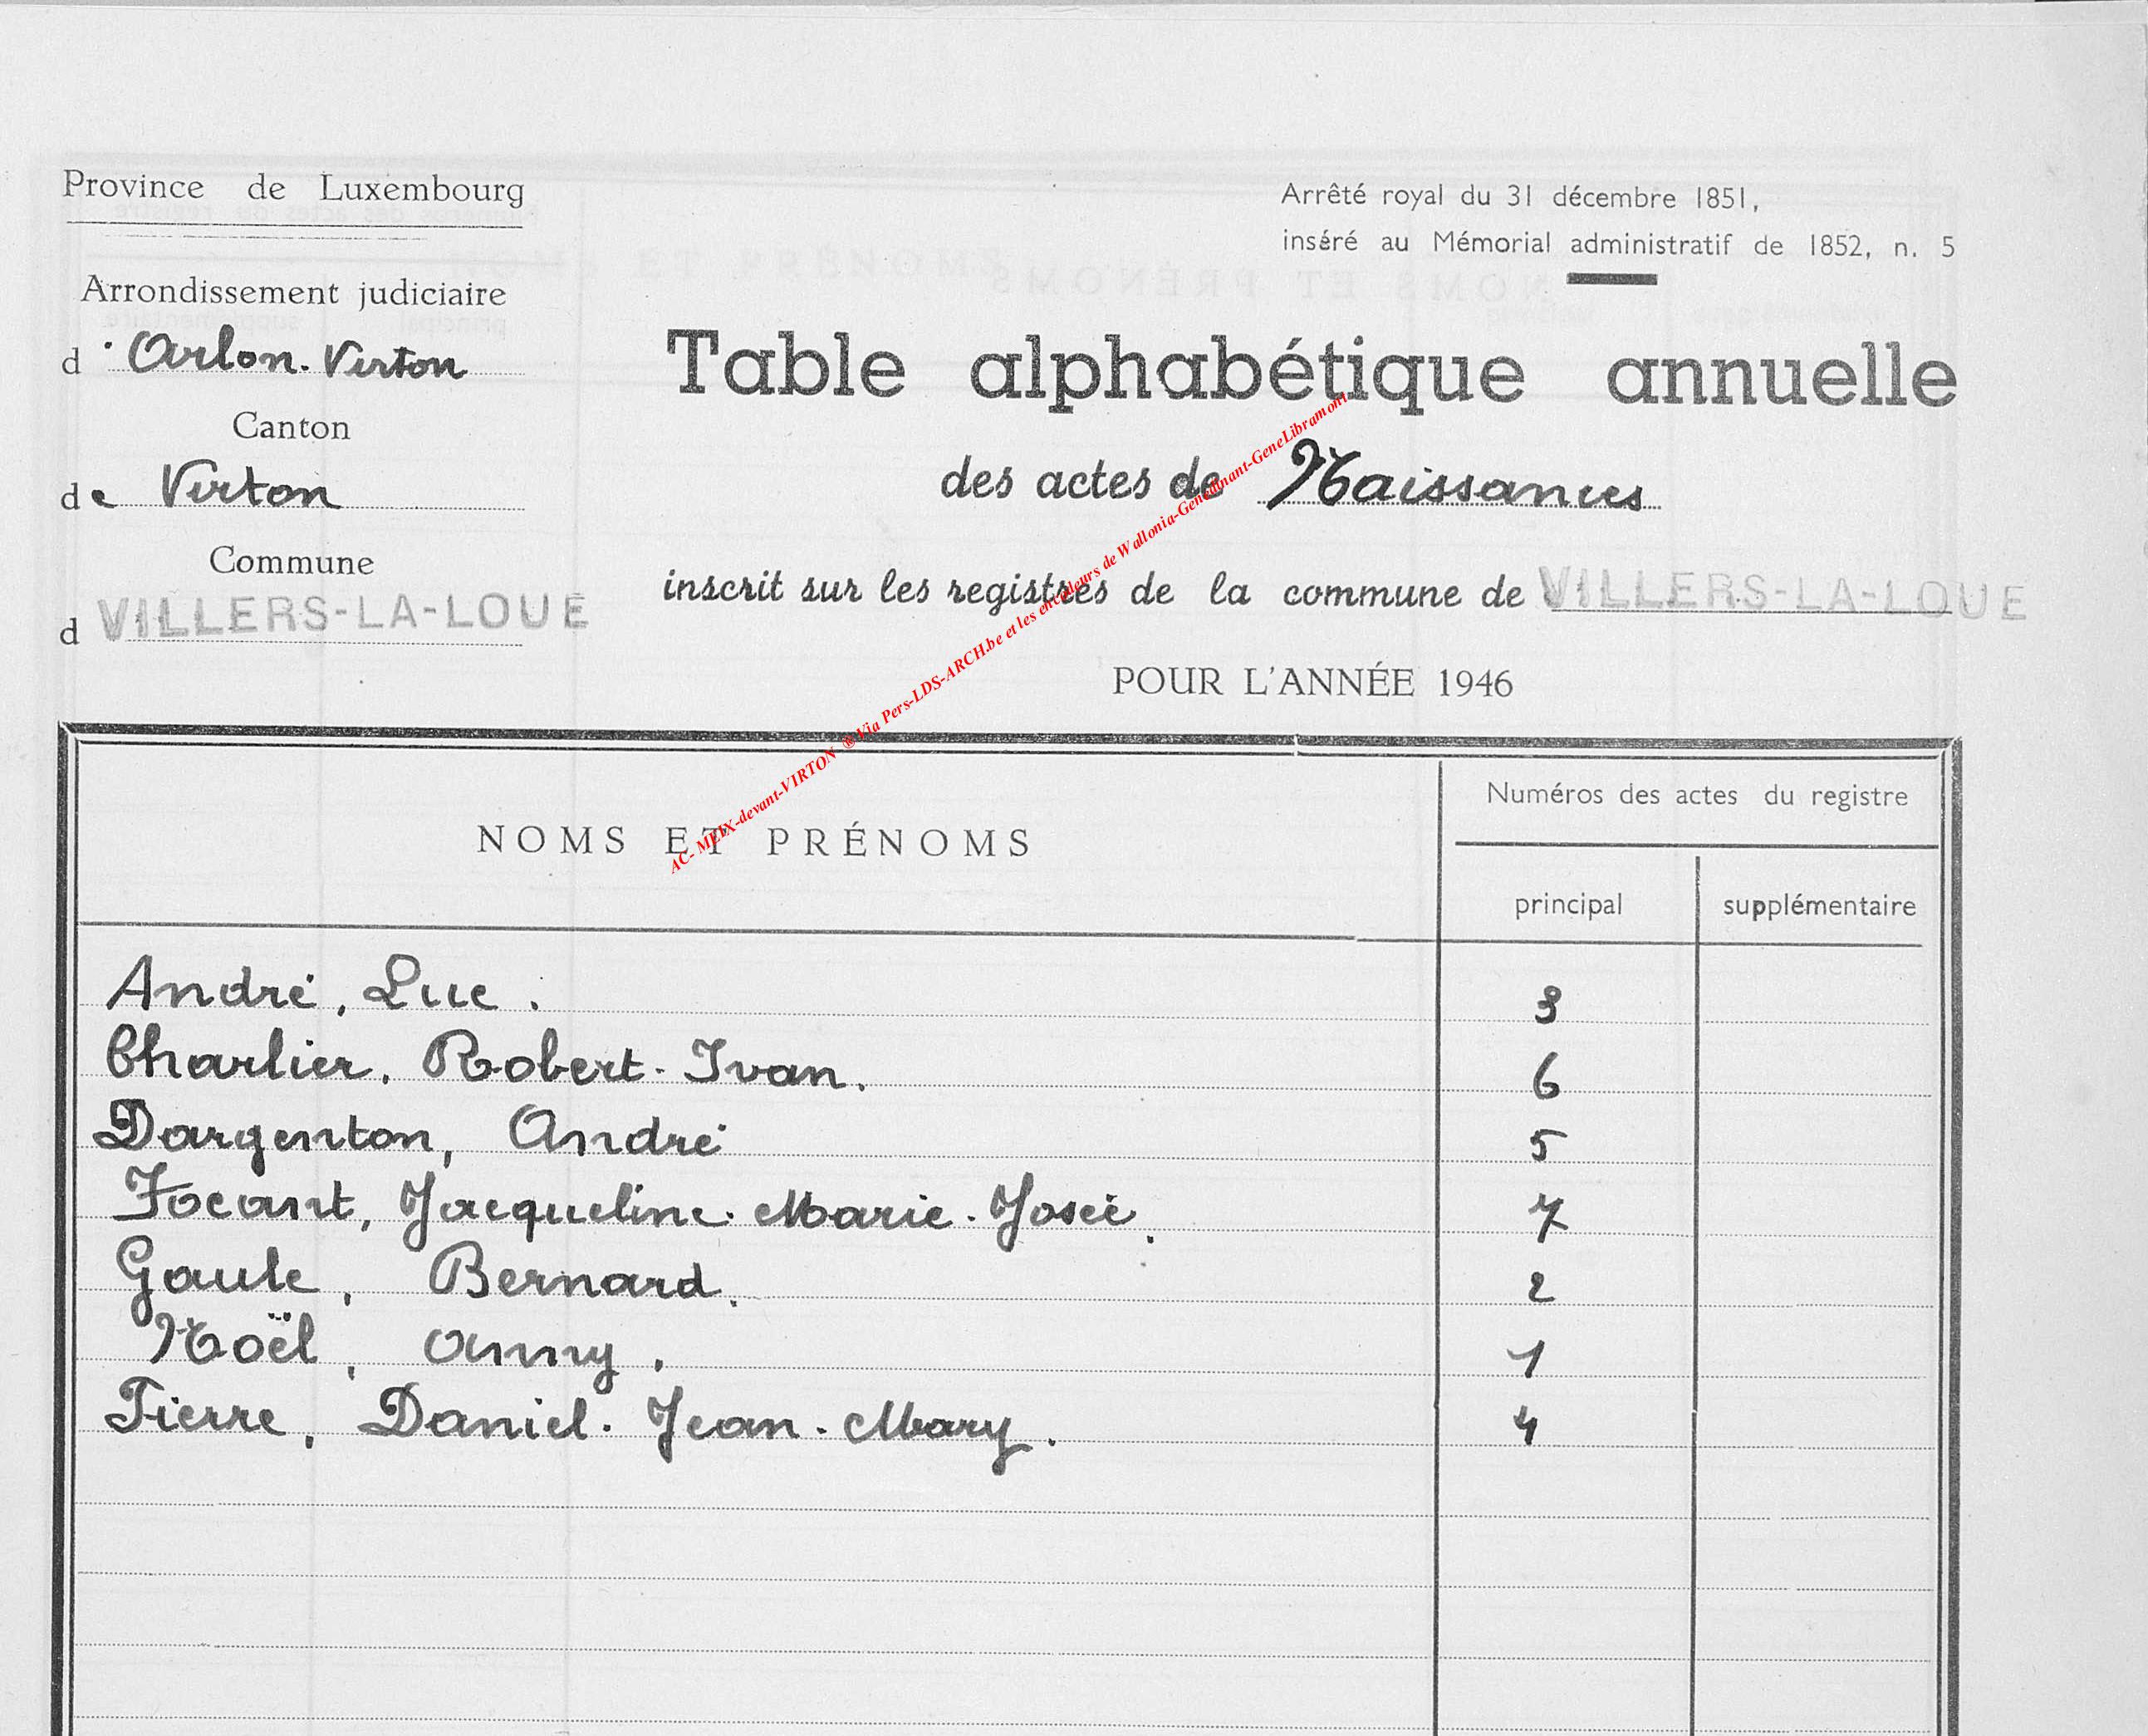 Province de Luxembourg
Arrêté royal du 31 décembre 1851,
inséré au Mémorial administratif de 1852, n. 5
Arrondissement judiciaire
d' Arlon-Virton
Canton
de Virton
Commune
d VILLERS-LA-LOUE
Table alphabétique annuelle
des actes de Naissances
inscrit sur les registres de la commune de VILLERS-LA-LOUE
POUR L'ANNÉE 1946
AC- MEIX-devant-VIRTON ® Via Pers-LDS-ARCH.be et les encodeurs de Wallonia-Genedinant-GeneLibramont
NOMS ET PRÉNOMS
Numéros des actes du registre
principal supplémentaire
André, Luc. 3
Charlier. Robert-Ivan. 6
Dargenton, André 5
Focant, Jacqueline-Marie-Josée. 7
Gaule, Bernard. 2
Noël, Anny. 1
Tierre, Daniel-Jean-Mary. 4